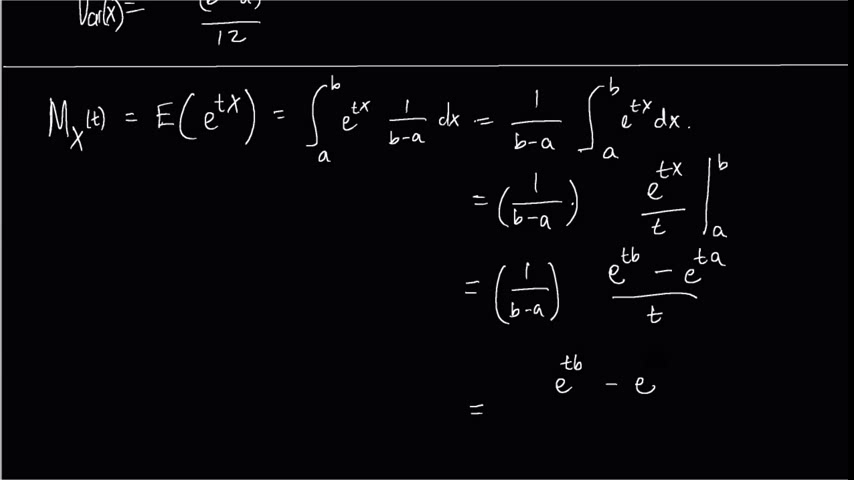 Var(x) = (b-a)² / 12
M_X(t) = E(e^{tX}) = ∫_a^b e^{tx} 1/(b-a) dx = 1/(b-a) ∫_a^b e^{tx} dx.
= (1/(b-a)) · e^{tx}/t |_a^b
= (1/(b-a)) (e^{tb} - e^{ta})/t
= e^{tb} - e